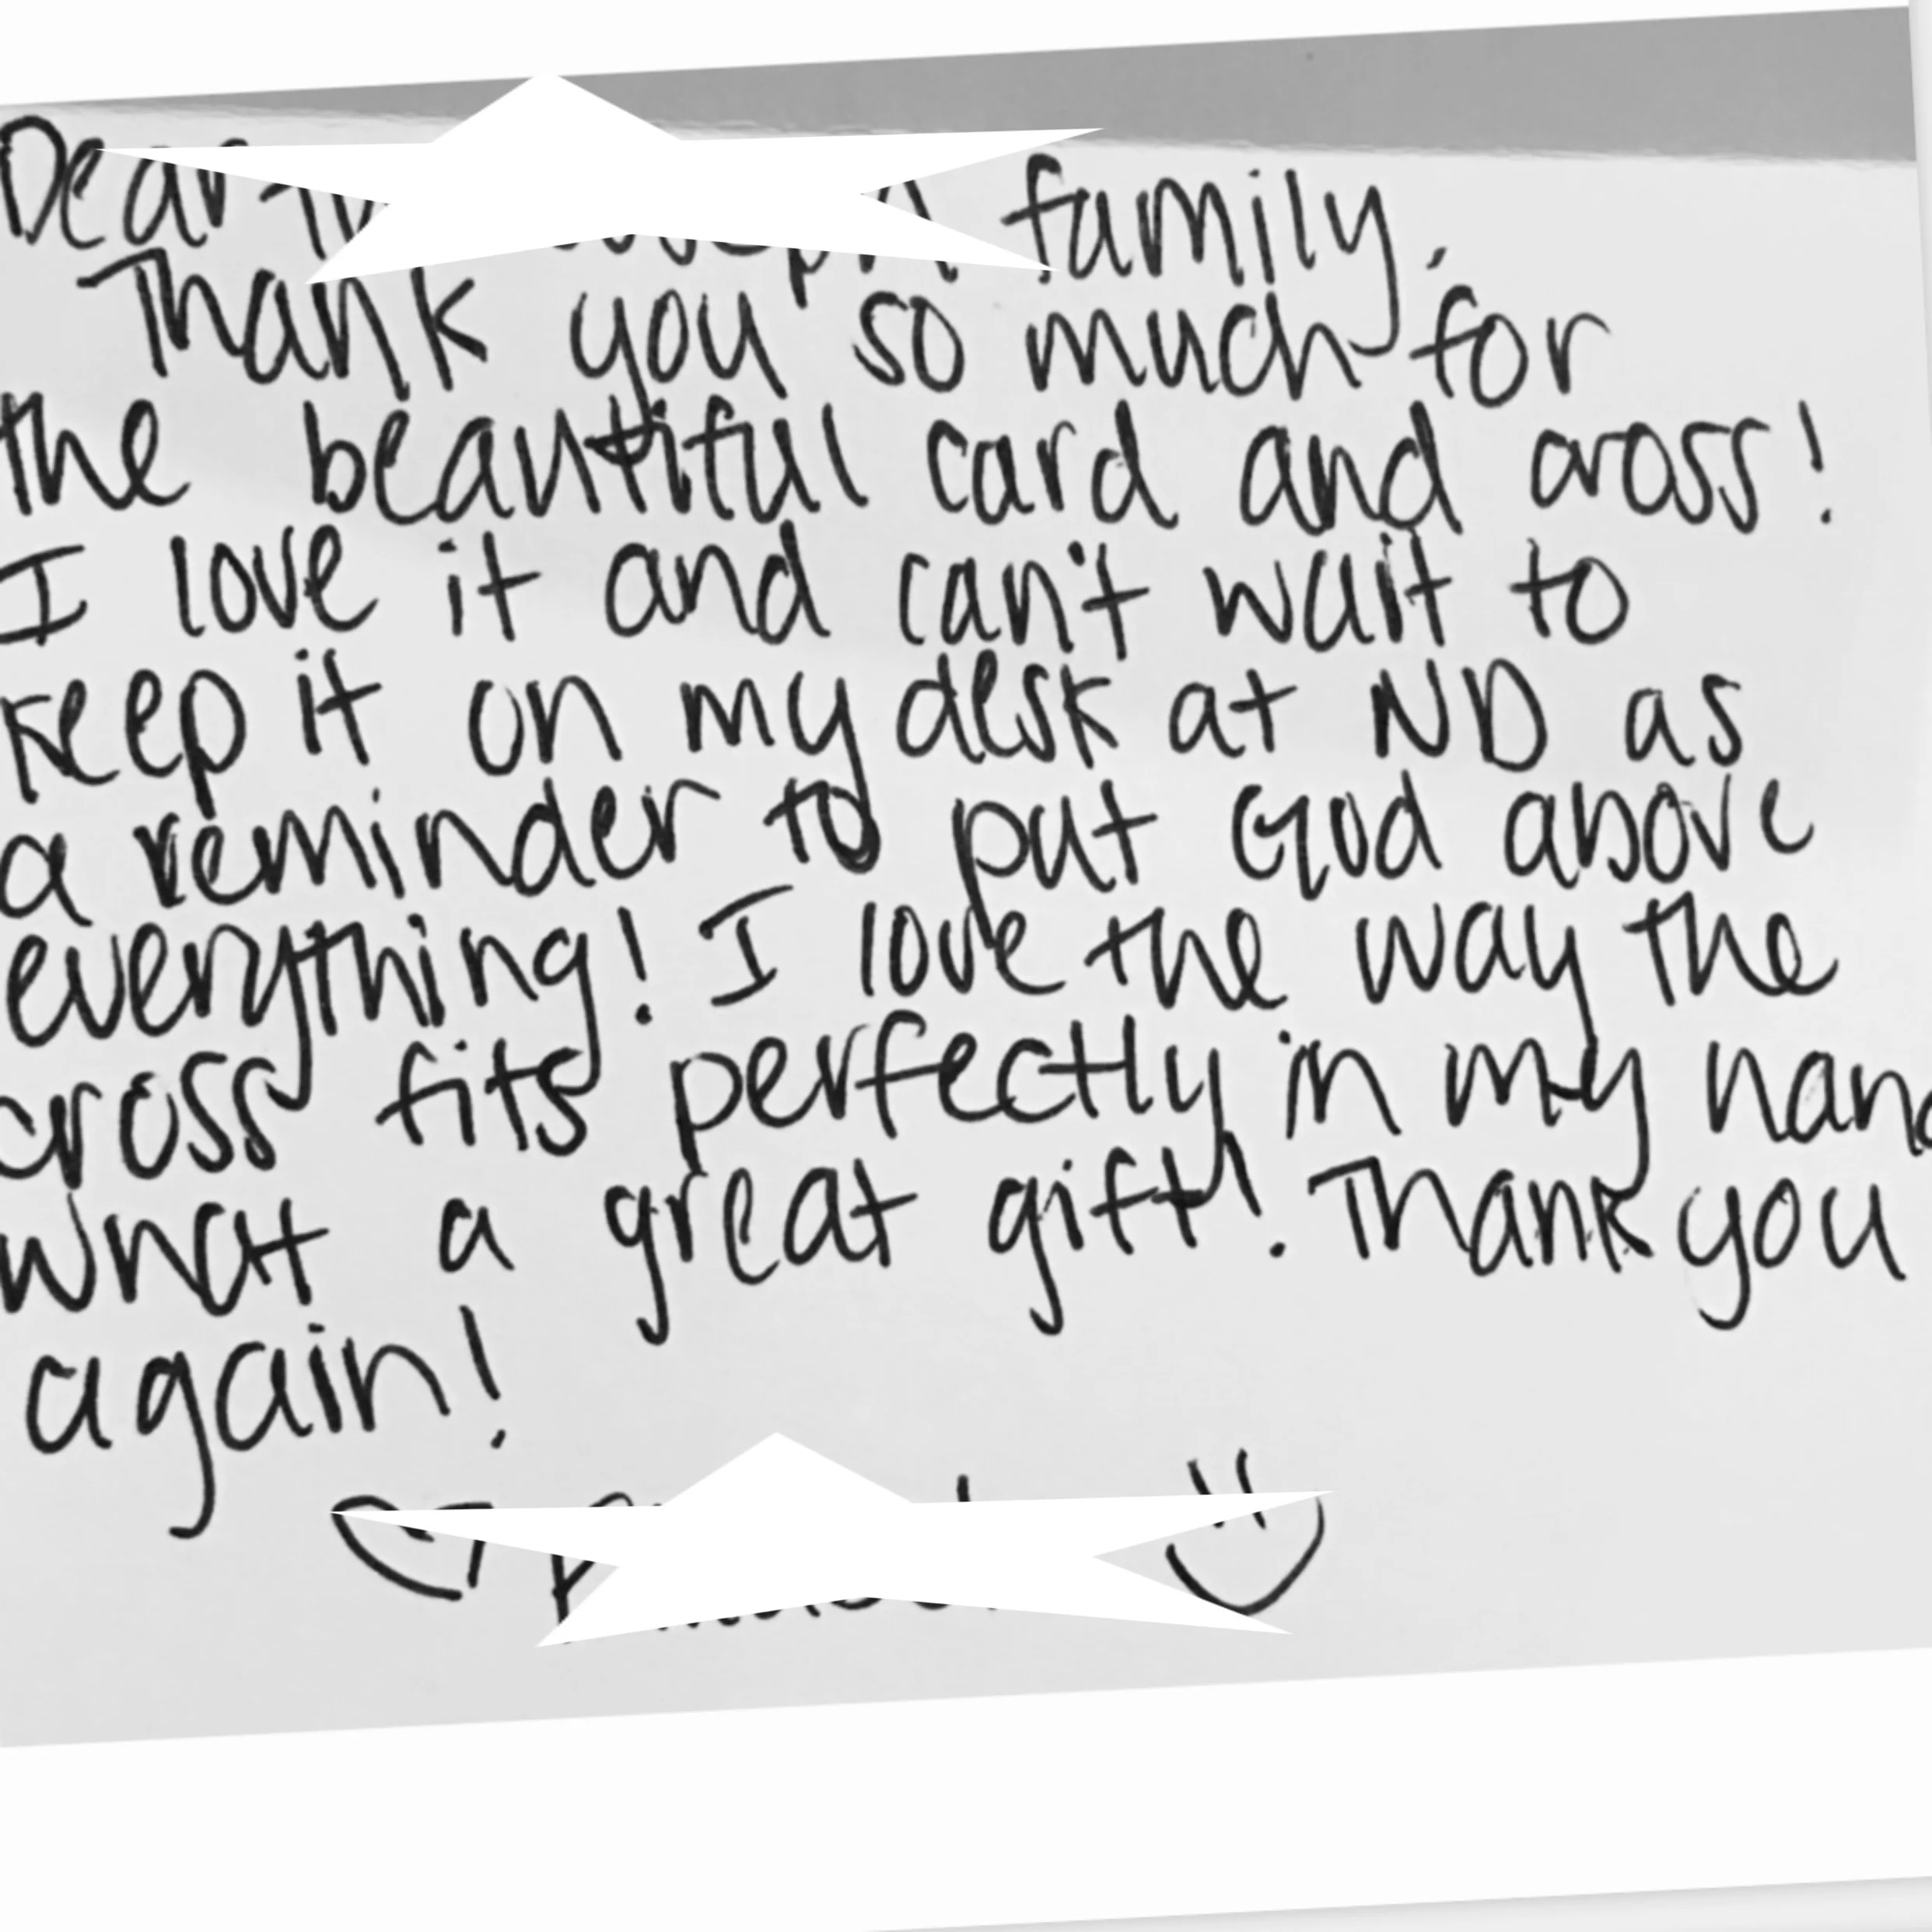 Dear family,
Thank you so much for
the beautiful card and cross!
I love it and can't wait to
keep it on my desk at ND as
a reminder to put God above
everything! I love the way the
cross fits perfectly in my hand
what a great gift! Thank you
again!